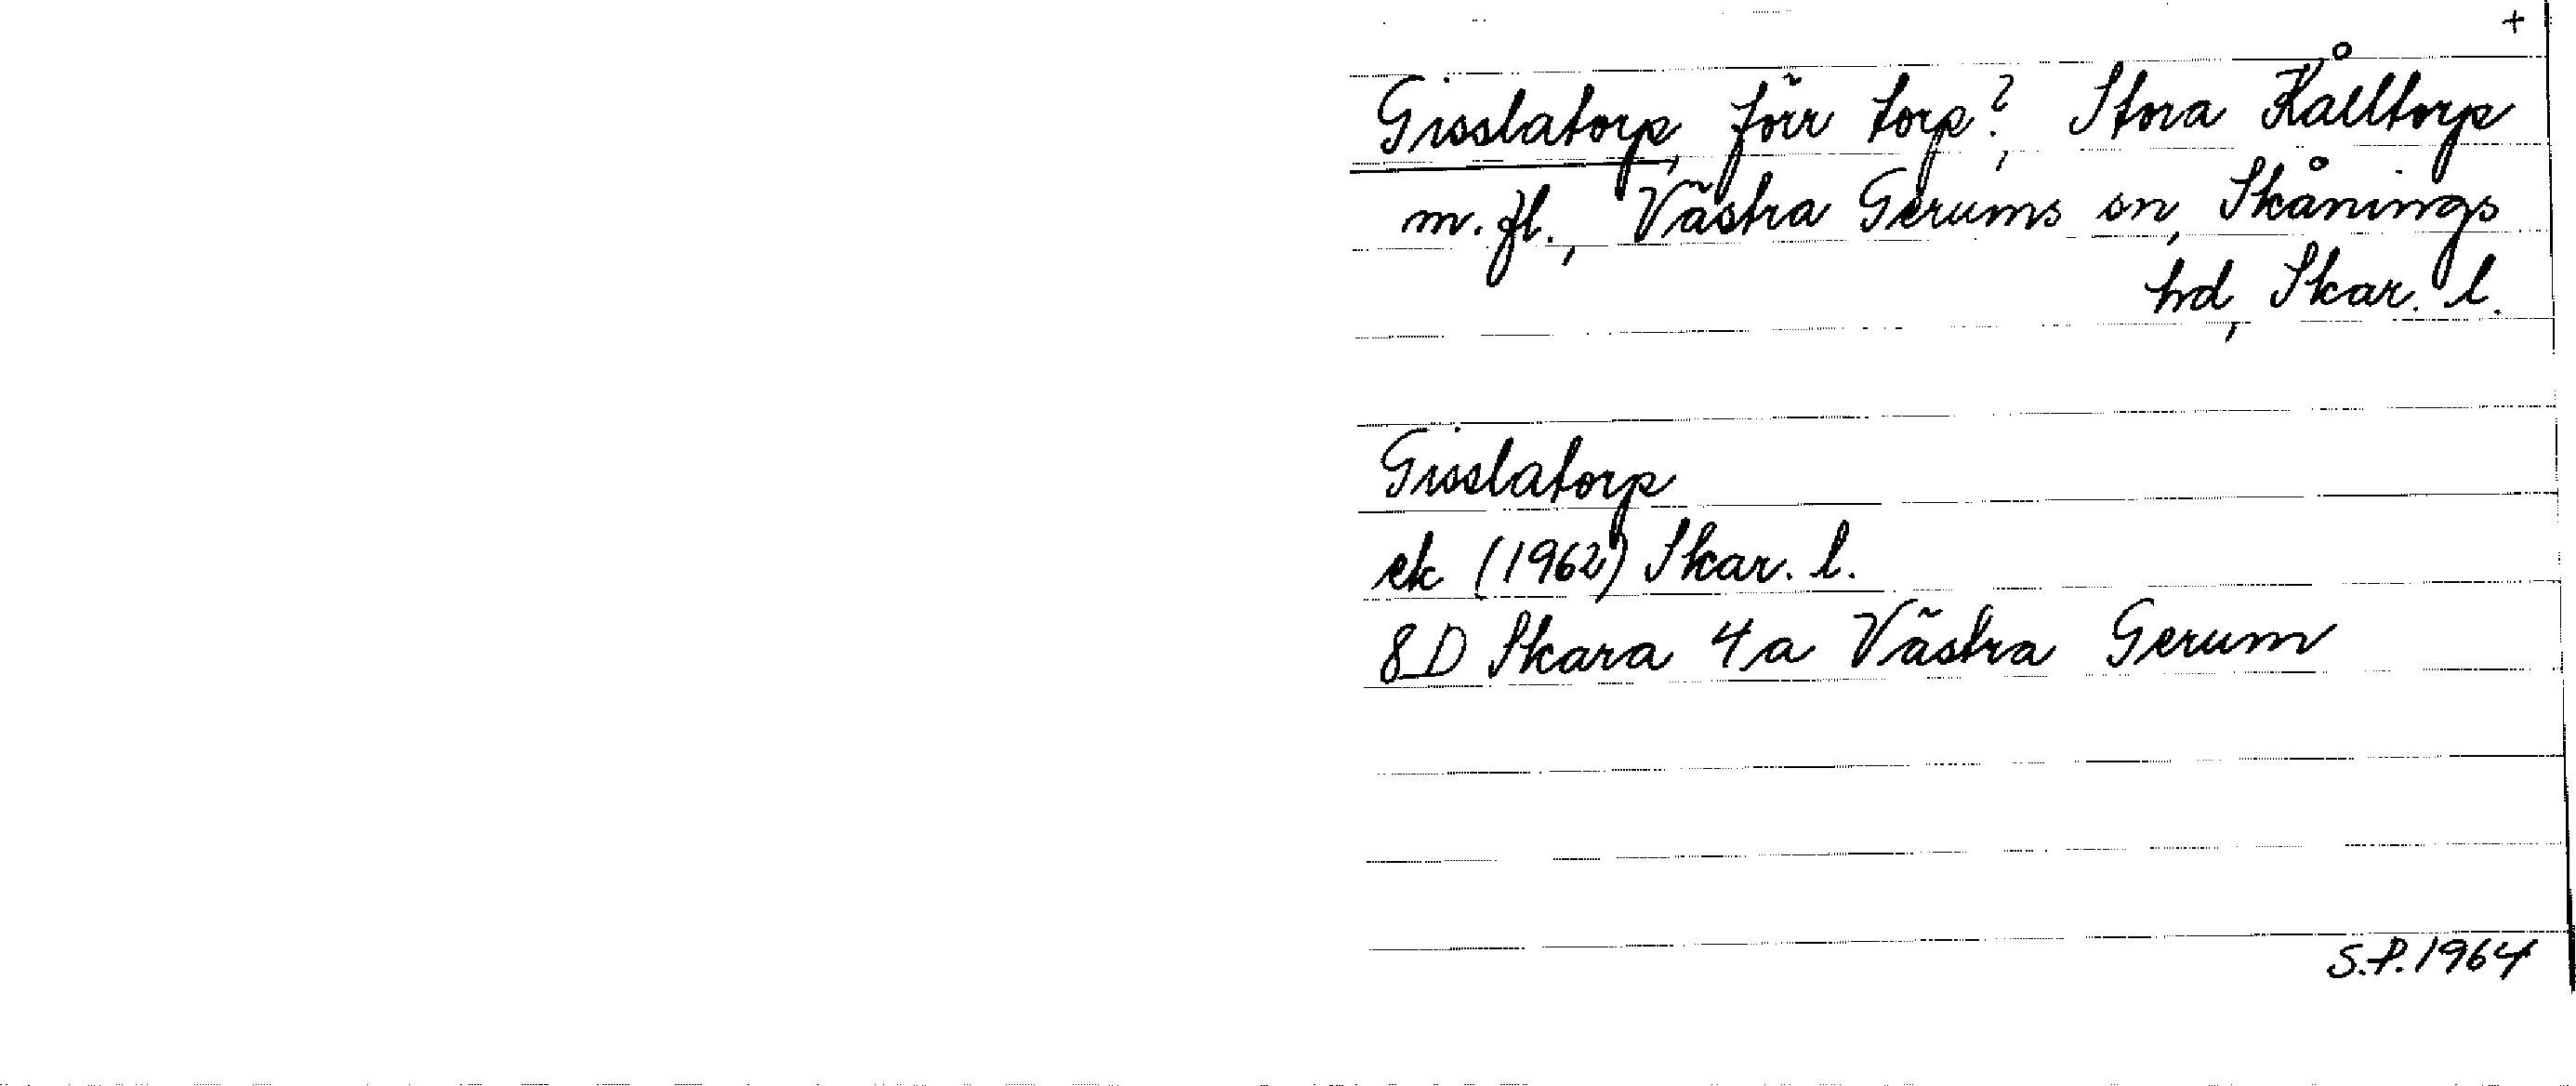 +
Gisslatorp, förr torp?, Stora Kålltorp
m. fl., Västra Gerums sn, Skånings
hd, Skar. l.
Gisslatorp
ek (1962) Skar. l.
8D Skara 4a Västra Gerum
S.P. 1964